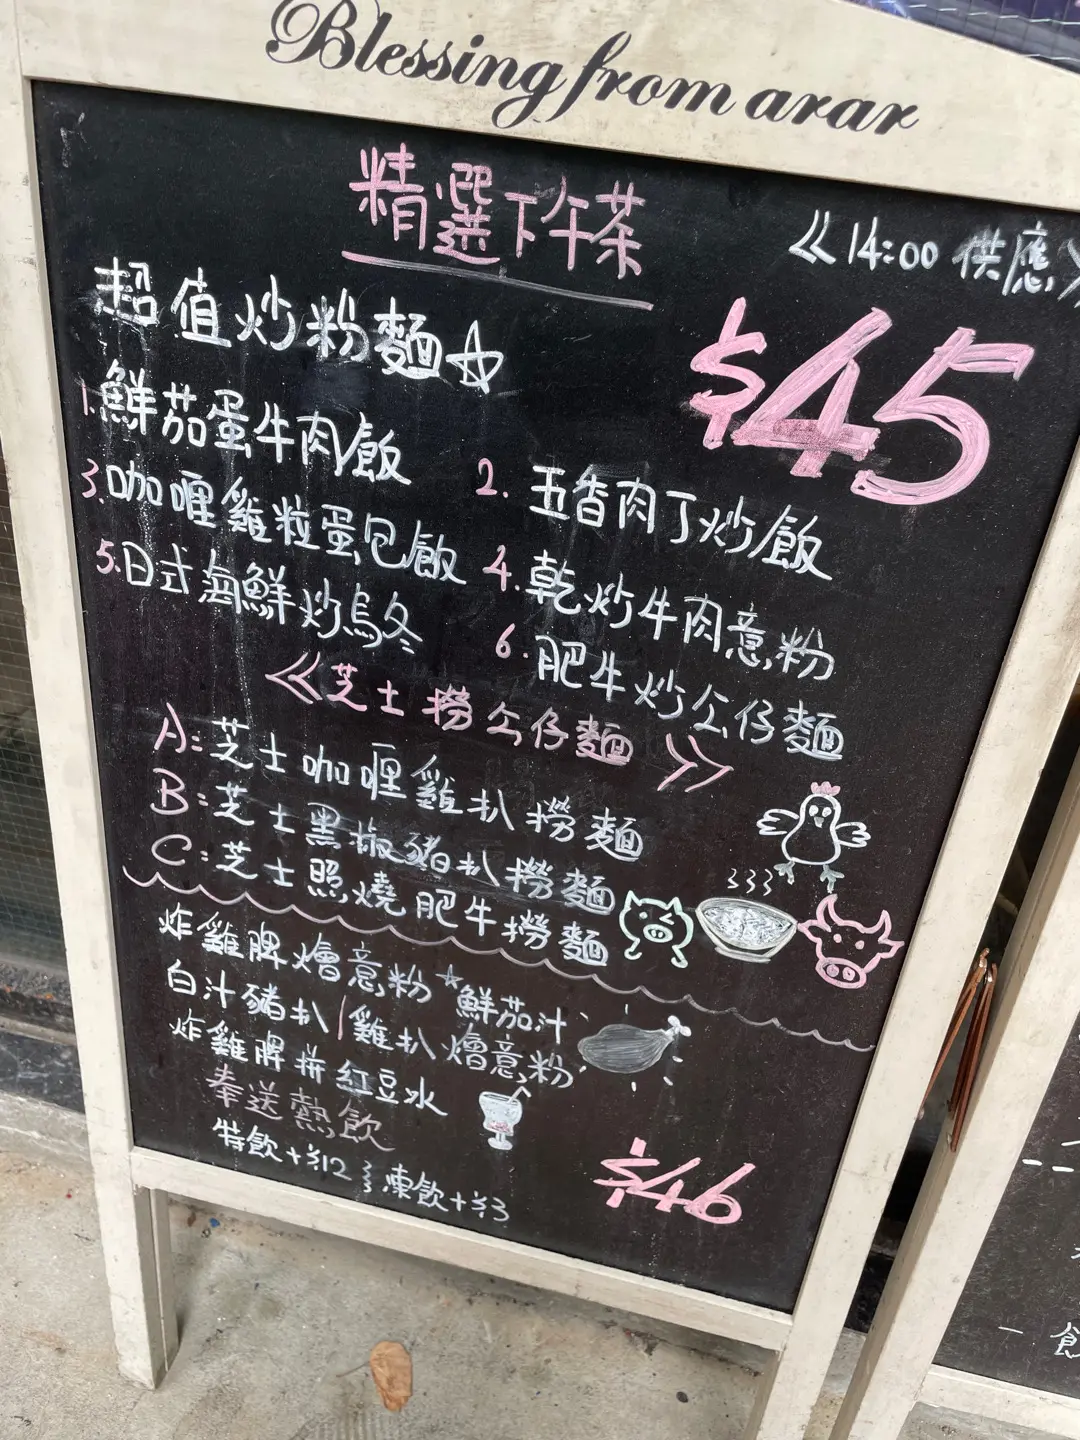 Blessing from arar
精選下午茶
《14:00 供應》
超值炒粉麵☆
$45
1. 鮮茄蛋牛肉飯
2. 五香肉丁炒飯
3. 咖喱雞粒蛋包飯
4. 乾炒牛肉意粉
5. 日式海鮮炒烏冬
6. 肥牛炒公仔麵
《芝士撈公仔麵》
A: 芝士咖喱雞扒撈麵
B: 芝士黑椒豬扒撈麵
C: 芝士照燒肥牛撈麵
炸雞脾燴意粉*鮮茄汁
白汁豬扒/雞扒燴意粉
炸雞脾拼紅豆冰
奉送熱飲
特飲+$12 凍飲+$3
$46